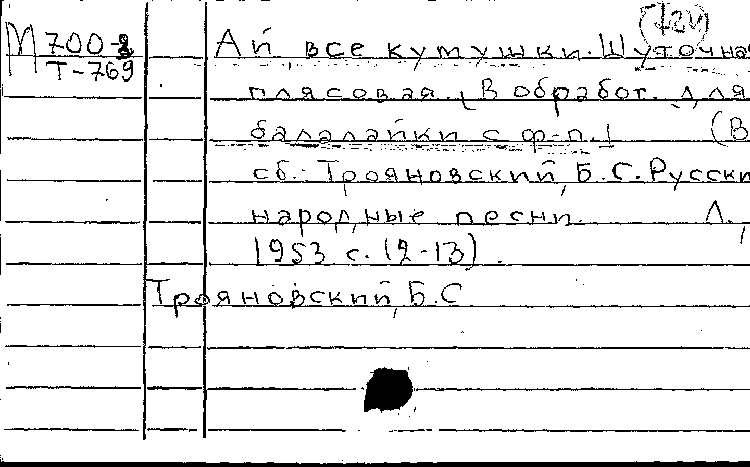 (724)
М 700-3 Ай все кумушки. Шуточная
Т-769
плясовая. [В обработ. для
балалайки с ф-п.] (В
сб.: Трояновский, Б.С. Русски
народные песни. Л.,
1953 с. (2-13).
Трояновский, Б.С